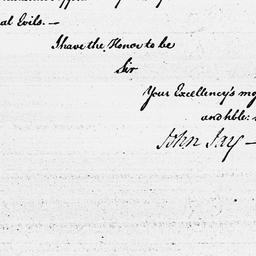 al Evils. —
I have the Honor to be
Sir
Your Excellency's
and hble:
John Jay —